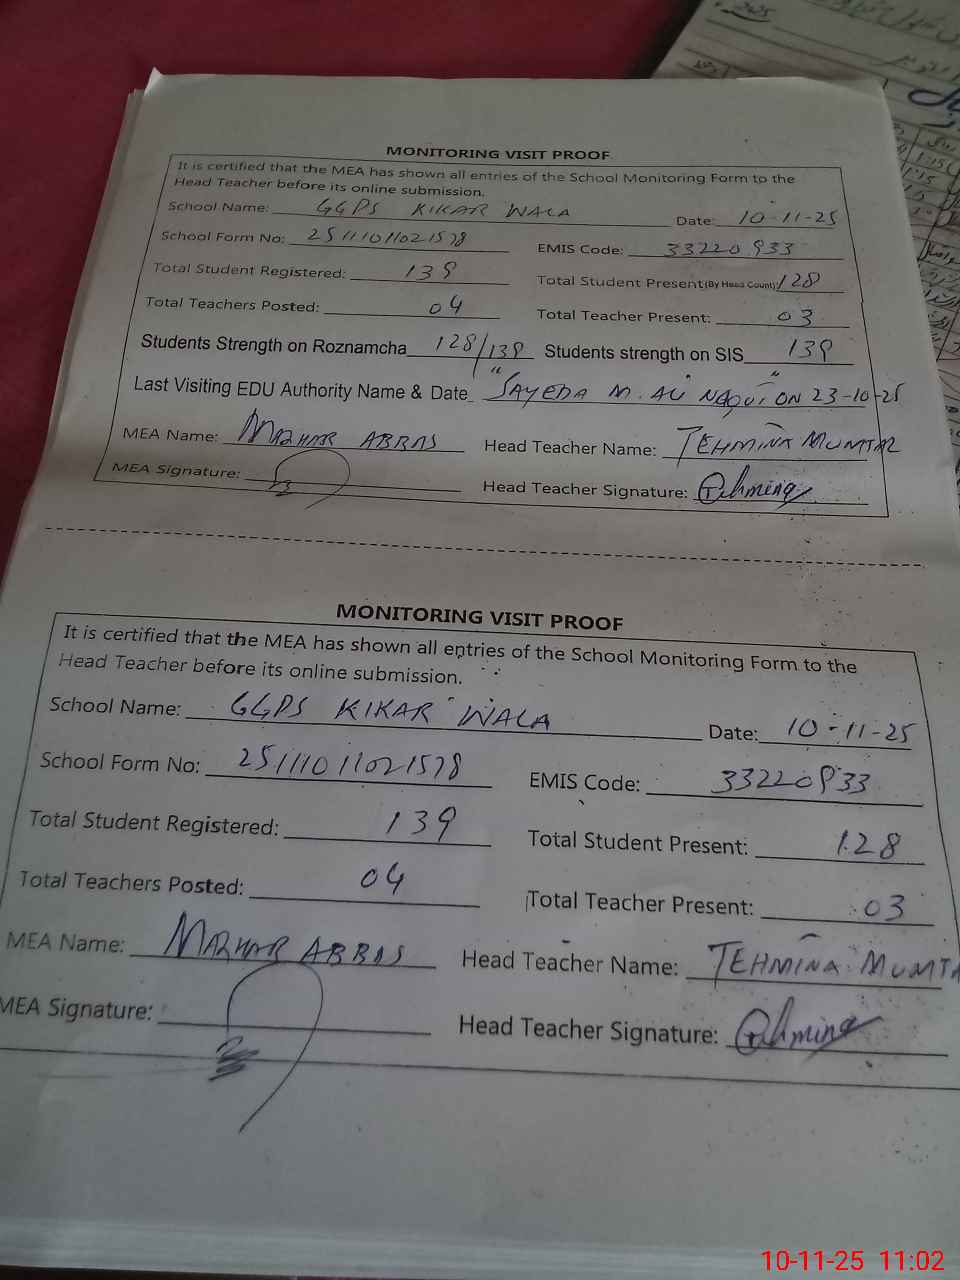 MONITORING VISIT PROOF
It is certified that the MEA has shown all entries of the School Monitoring Form to the
Head Teacher before its online submission.
School Name: GGPS KIKAR WALA Date: 10-11-25
School Form No: 251111011021578 EMIS Code: 33220933
Total Student Registered: 139 Total Student Present(By Head Count): 128
Total Teachers Posted: 04 Total Teacher Present: 03
Students Strength on Roznamcha 128/139 Students strength on SIS 139
Last Visiting EDU Authority Name & Date SAYEDA M. ALI NAQVI ON 23-10-25
MEA Name: MAZHAR ABBAS Head Teacher Name: TEHMINA MUMTAZ
MEA Signature: Head Teacher Signature: Tehmina
MONITORING VISIT PROOF
It is certified that the MEA has shown all entries of the School Monitoring Form to the
Head Teacher before its online submission.
School Name: GGPS KIKAR WALA Date: 10-11-25
School Form No: 251111011021578 EMIS Code: 33220933
Total Student Registered: 139 Total Student Present: 128
Total Teachers Posted: 04 Total Teacher Present: 03
MEA Name: MAZHAR ABBAS Head Teacher Name: TEHMINA MUMTA
MEA Signature: Head Teacher Signature: Tehmina
10-11-25 11:02